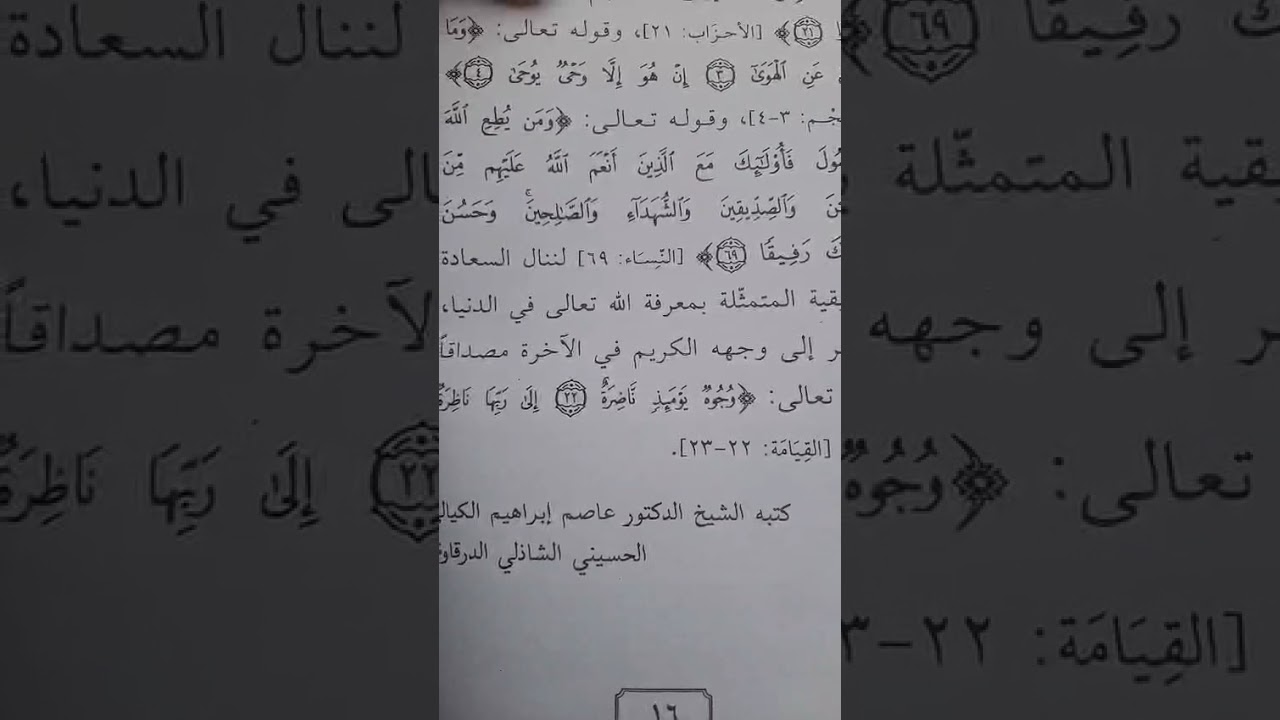 ﴿٢١﴾ [الأحزَاب: ٢١]، وقوله تعالى: ﴿وَمَا
عَنِ ٱلْهَوَىٰٓ ٣ إِنْ هُوَ إِلَّا وَحْىٌ يُوحَىٰ ٤﴾
ـجْـم: ٣-٤]، وقـولـه تـعـالـى: ﴿وَمَن يُطِعِ ٱللَّهَ
ـسُولَ فَأُو۟لَـٰٓئِكَ مَعَ ٱلَّذِينَ أَنْعَمَ ٱللَّهُ عَلَيْهِم مِّنَ
ـنَ وَٱلصِّدِّيقِينَ وَٱلشُّهَدَآءِ وَٱلصَّـٰلِحِينَ ۚ وَحَسُنَ
ـكَ رَفِيقًا ٦٩﴾ [النِّسَاء: ٦٩] لننال السعادة
ـقية المتمثّلة بمعرفة الله تعالى في الدنيا،
ـر إلى وجهه الكريم في الآخرة مصداقاً
تعالى: ﴿وُجُوهٌ يَوْمَئِذٍ نَّاضِرَةٌ ٢٢ إِلَىٰ رَبِّهَا نَاظِرَةٌ
[القِيَامَة: ٢٢-٢٣].
كتبه الشيخ الدكتور عاصم إبراهيم الكيالـ
الحسيني الشاذلي الدرقاو
١٦